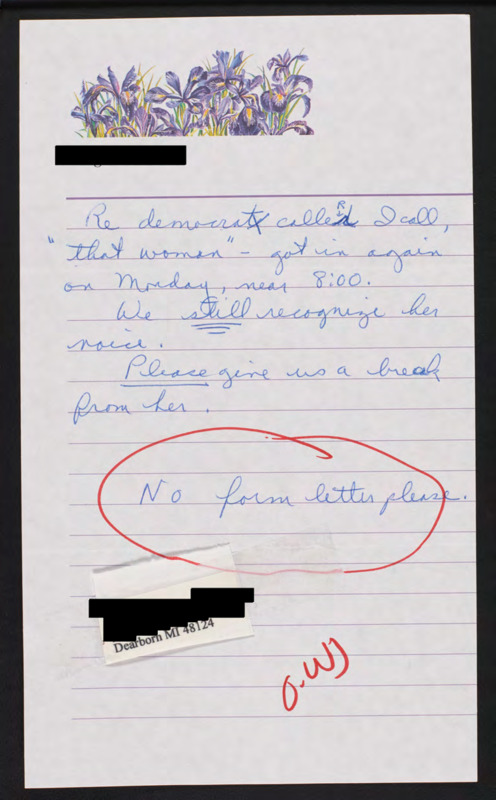 Re democrat caller I call,
"that woman" - got in again
on Monday, near 8:00.
We still recognize her
voice.
Please give us a break
from her.
No form letter please.
Dearborn MI 48124